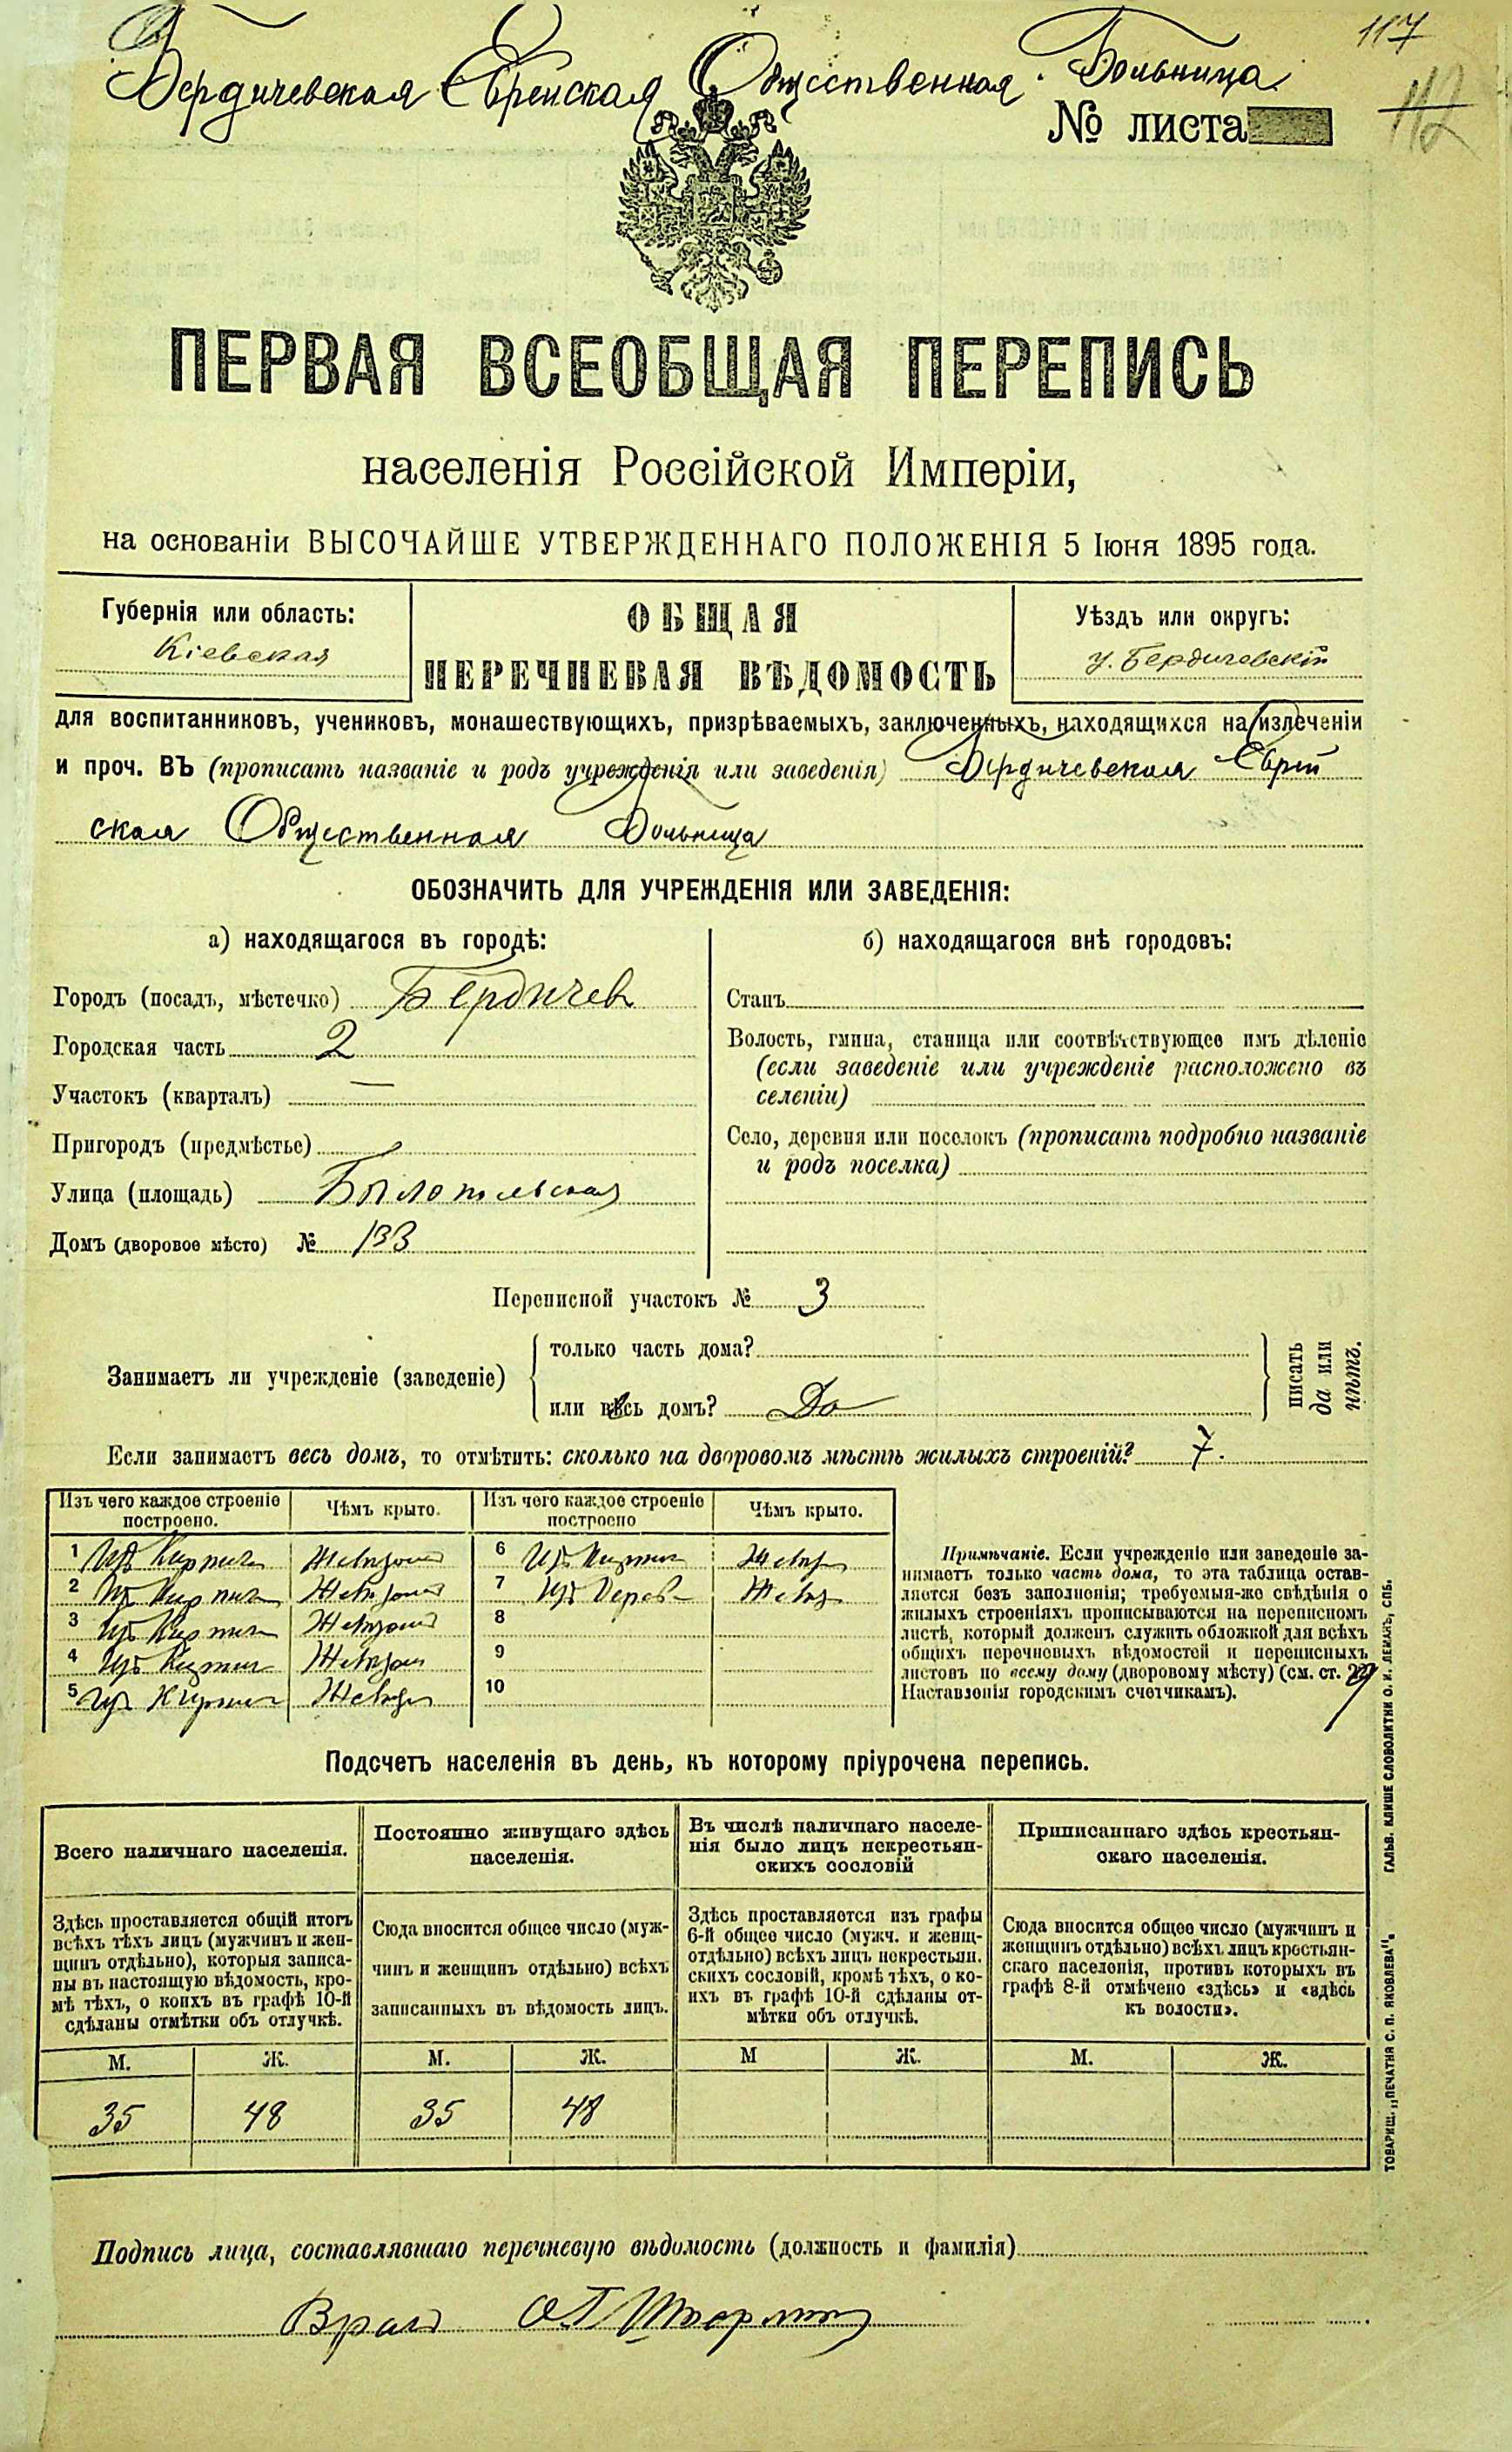 117
Бердичевская Еврейская Общественная Больница
№ листа
112
ПЕРВАЯ ВСЕОБЩАЯ ПЕРЕПИСЬ
населенія Россійской Имперіи,
на основаніи ВЫСОЧАЙШЕ УТВЕРЖДЕННАГО ПОЛОЖЕНІЯ 5 Іюня 1895 года.
Губернія или область:
Кіевская
ОБЩАЯ
ПЕРЕЧНЕВАЯ ВѢДОМОСТЬ
Уѣздъ или округъ:
у. Бердичевскій
для воспитанниковъ, учениковъ, монашествующихъ, призрѣваемыхъ, заключенныхъ, находящихся на излеченіи
и проч. ВЪ (прописать названіе и родъ учрежденія или заведенія) Бердичевская Еврей
ская Общественная Больница
ОБОЗНАЧИТЬ ДЛЯ УЧРЕЖДЕНІЯ ИЛИ ЗАВЕДЕНІЯ:
а) находящагося въ городѣ:
Городъ (посадъ, мѣстечко) Бердичев
Городская часть 2
Участокъ (кварталъ) —
Пригородъ (предмѣстье)
Улица (площадь) Бѣлопольская
Домъ (дворовое мѣсто) № 133
б) находящагося внѣ городовъ:
Станъ
Волость, гмина, станица или соотвѣтствующее имъ дѣленіе
(если заведеніе или учрежденіе расположено въ
селеніи)
Село, деревня или поселокъ (прописать подробно названіе
и родъ поселка)
Переписной участокъ № 3
Занимаетъ ли учрежденіе (заведеніе)
только часть дома?
или весь домъ? Да
писать
да или
нѣтъ.
Если занимаетъ весь домъ, то отмѣтить: сколько на дворовомъ мѣстѣ жилыхъ строеній? 7.
Изъ чего каждое строеніе построено. Чѣмъ крыто. Изъ чего каждое строеніе построено Чѣмъ крыто.
1 Изъ Кирпич Желѣзомъ 6 Изъ Кирпич Желѣз
2 Изъ Кирпич Желѣзомъ 7 Изъ Дерев Желѣз
3 Изъ Кирпич Желѣзомъ 8
4 Изъ Кирпич Желѣзом 9
5 Изъ Кирпич Желѣз 10
Примѣчаніе. Если учрежденіе или заведеніе за-
нимаетъ только часть дома, то эта таблица остав-
ляется безъ заполненія; требуемыя-же свѣдѣнія о
жилыхъ строеніяхъ прописываются на переписномъ
листѣ, который долженъ служить обложкой для всѣхъ
общихъ перечневыхъ вѣдомостей и переписныхъ
листовъ по всему дому (дворовому мѣсту) (см. ст.
Наставленія городскимъ счетчикамъ).
Подсчетъ населенія въ день, къ которому пріурочена перепись.
Всего наличнаго населенія.
Постоянно живущаго здѣсь
населенія.
Въ числѣ наличнаго населе-
нія было лицъ некрестьян-
скихъ сословій
Приписаннаго здѣсь крестьян-
скаго населенія.
Здѣсь проставляется общій итогъ
всѣхъ тѣхъ лицъ (мужчинъ и жен-
щинъ отдѣльно), которыя записа-
ны въ настоящую вѣдомость, кро-
мѣ тѣхъ, о коихъ въ графѣ 10-й
сдѣланы отмѣтки объ отлучкѣ.
Сюда вносится общее число (муж-
чинъ и женщинъ отдѣльно) всѣхъ
записанныхъ въ вѣдомость лицъ.
Здѣсь проставляется изъ графы
6-й общее число (мужч. и женщ-
отдѣльно) всѣхъ лицъ некрестьян.
скихъ сословій, кромѣ тѣхъ, о ко-
ихъ въ графѣ 10-й сдѣланы от-
мѣтки объ отлучкѣ.
Сюда вносится общее число (мужчинъ и
женщинъ отдѣльно) всѣхъ лицъ крестьян-
скаго населенія, противъ которыхъ въ
графѣ 8-й отмѣчено «здѣсь» и «здѣсь
къ волости».
М. Ж. М. Ж. М Ж. М. Ж.
35 48 35 48
Подпись лица, составлявшаго перечневую вѣдомость (должность и фамилія)
Врачъ
ТОВАРИЩ. „ПЕЧАТНЯ С. П. ЯКОВЛЕВА". ГАЛЬВ. КЛИШЕ СЛОВОЛИТНИ О. И. ЛЕМАНЪ, СПБ.